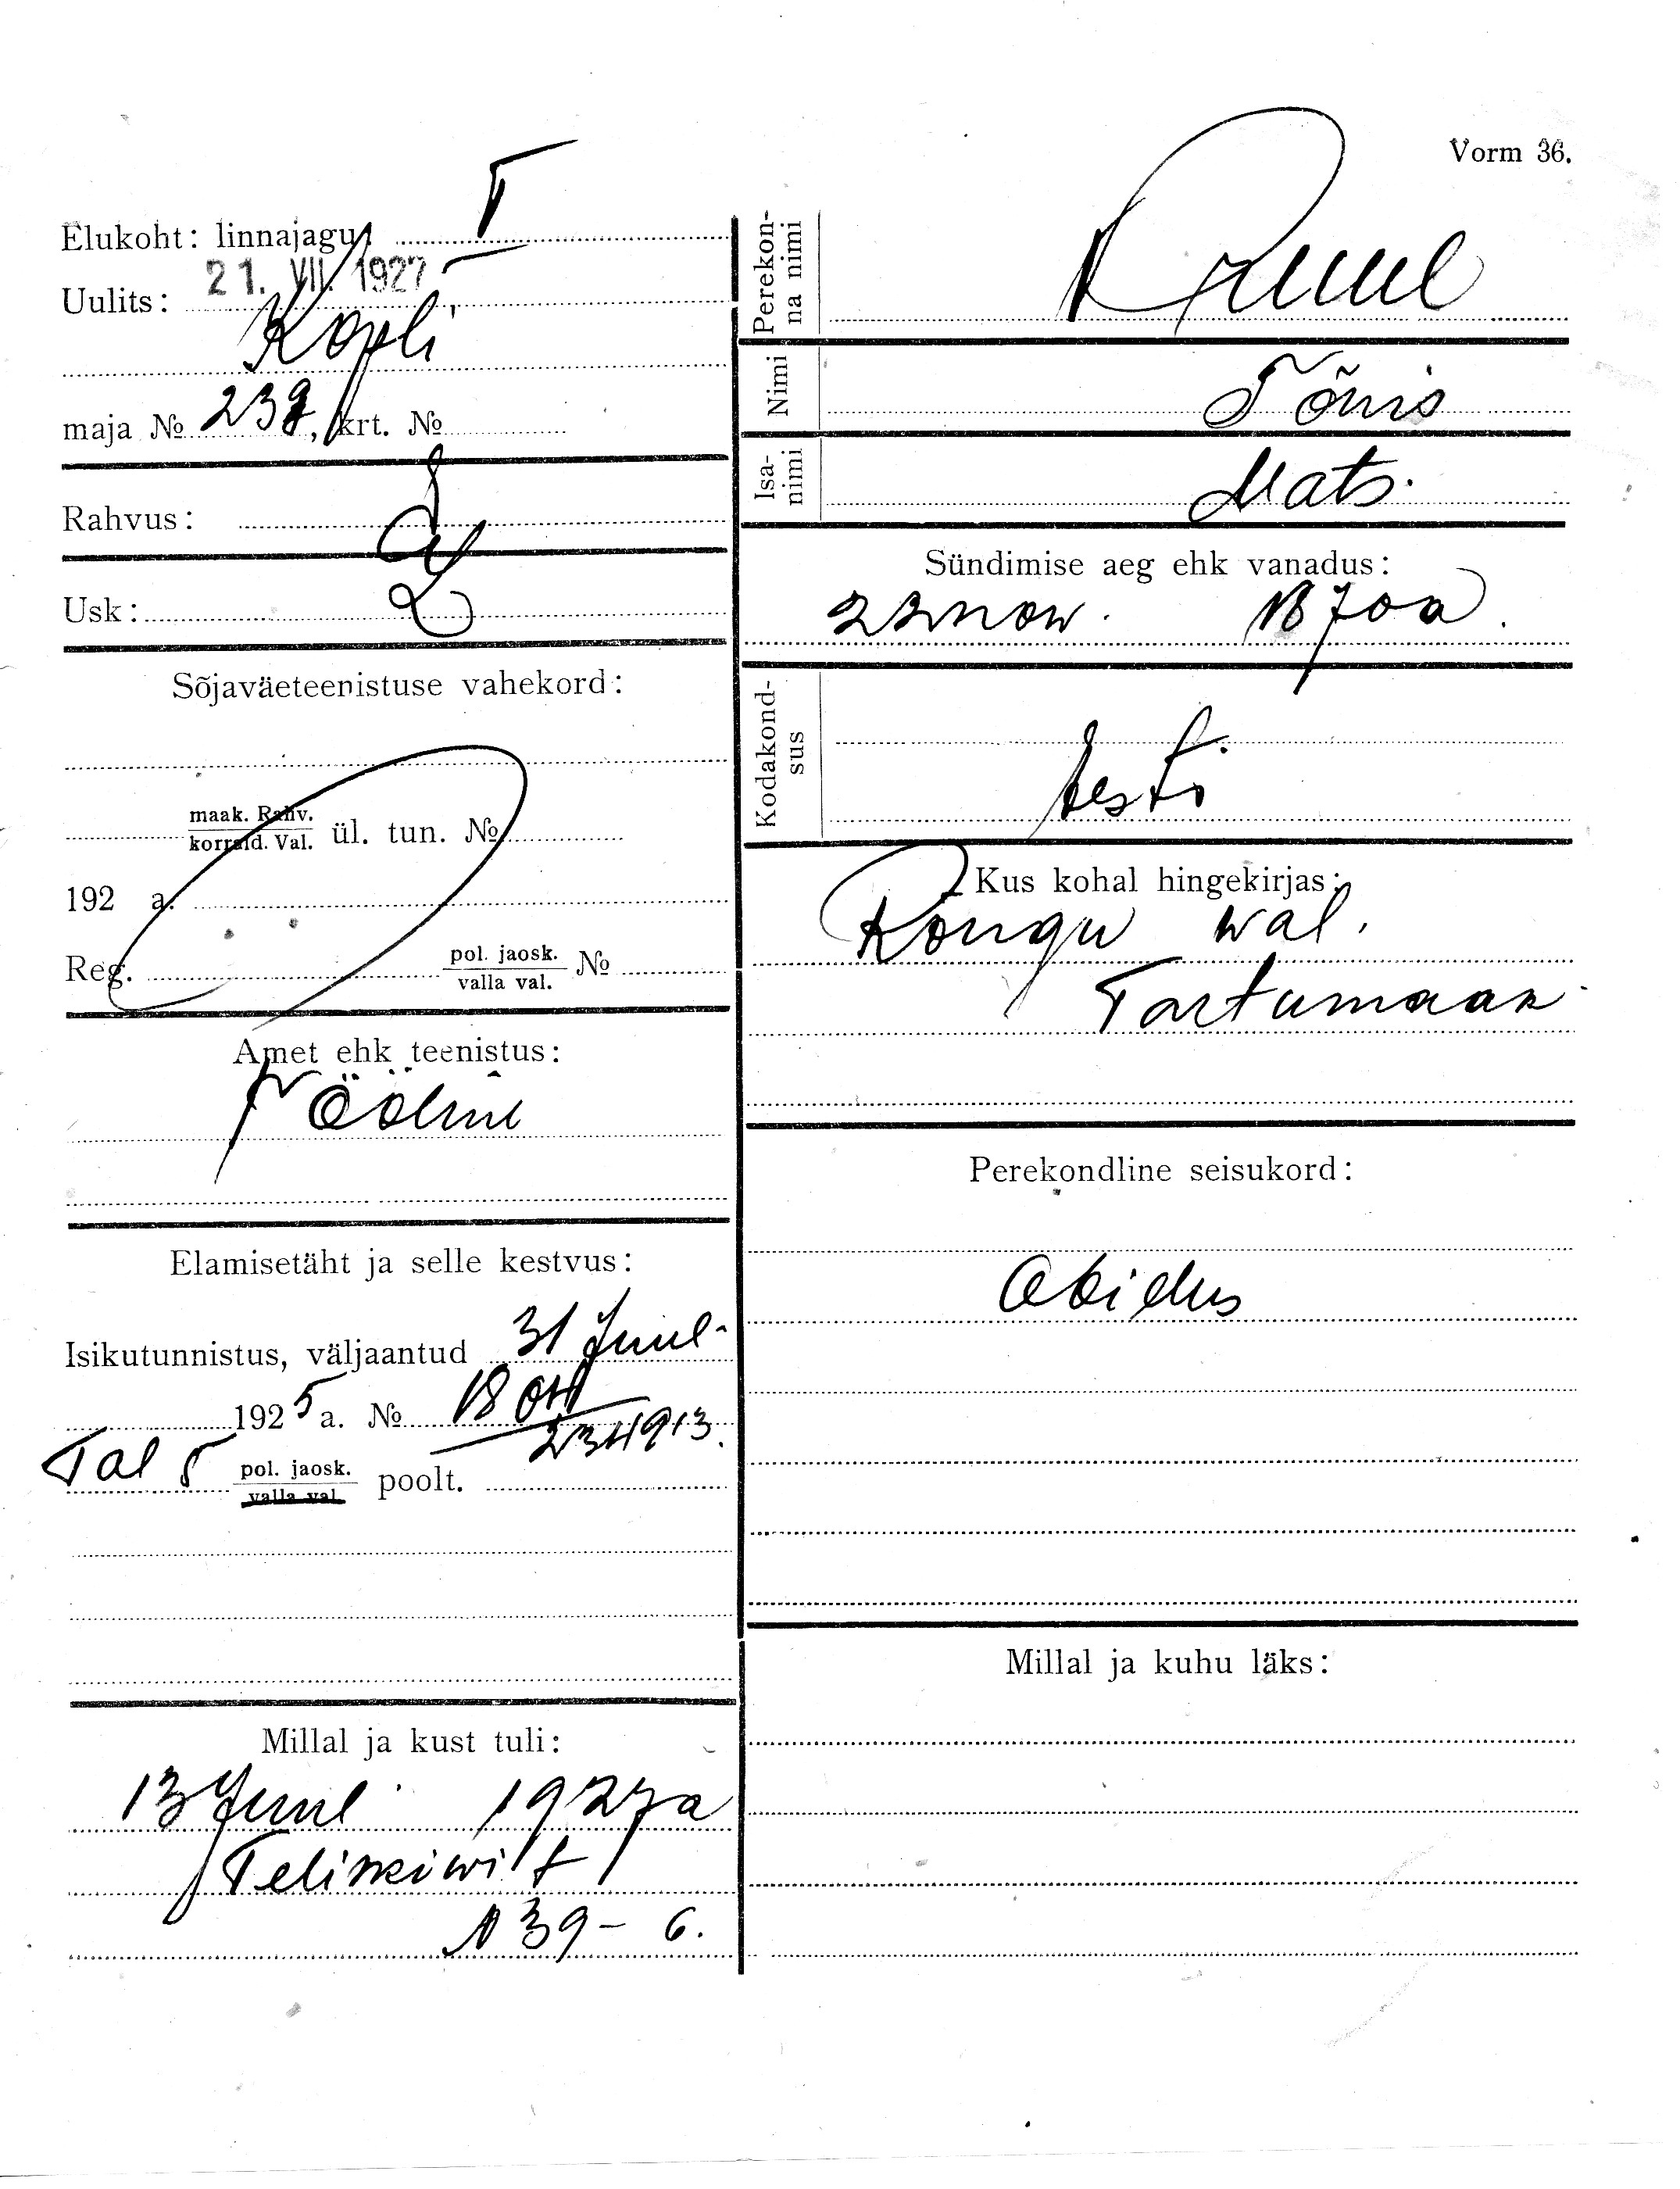 Vorm 36.
Elukoht: linnajagu
21. VII. 1927
Uulits:
Kopli
maja № 23 , krt. №
Rahvus:
Usk: L
Sõjaväeteenistuse vahekord:
maak. Rahv.
korrald. Val. ül. tun. №
192 a.
Reg. pol. jaosk. №
valla val.
Amet ehk teenistus:
Tööline
Elamisetäht ja selle kestvus:
Isikutunnistus, väljaantud 31 Juul
1925 a. № 18
234913.
Tal 5 pol. jaosk. poolt.
valla val.
Millal ja kust tuli:
13 Juul 1927 a
Teliskiwi t
N 39 - 6.
Perekon-
na nimi
Nimi Tõnis
Isa-
nimi Mats.
Sündimise aeg ehk vanadus:
22 now. 1870 a.
Kodakond-
sus
Eesti
Kus kohal hingekirjas:
Rõngu wal.
Tartumaan
Perekondline seisukord:
Abielus
Millal ja kuhu läks: